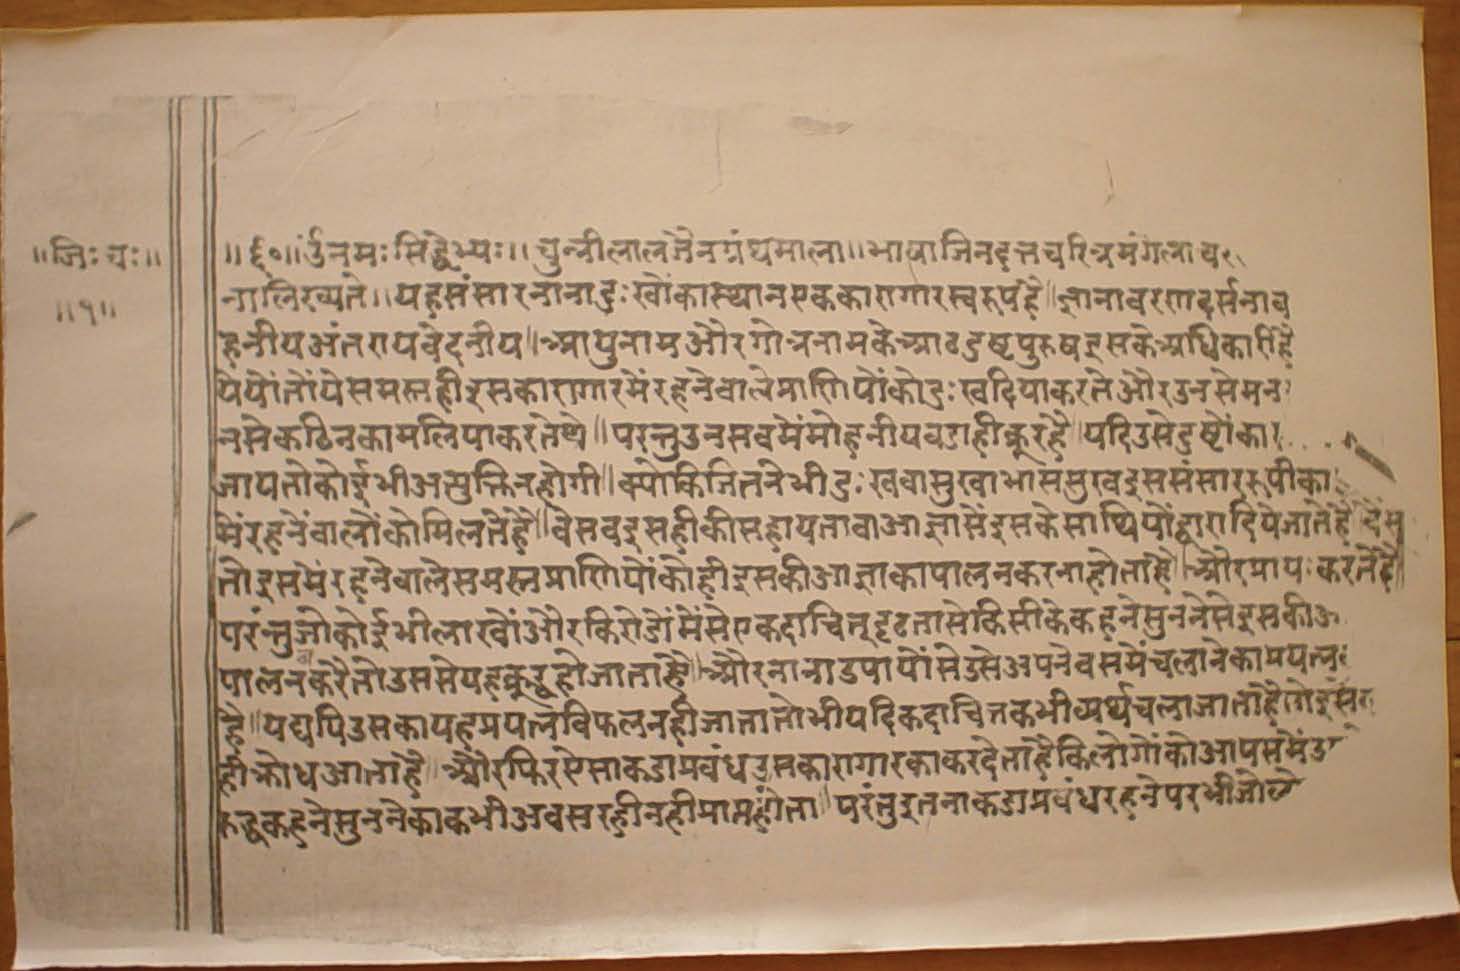 ॥जिः चः॥
॥१॥
॥६०॥ उंनमः सिद्धेभ्यः॥ चुन्नीलालजैनग्रंथमाला॥ भाषाजिनदत्तचरित्रमंगलाच
नालिख्यते॥ यहसंसारनानादुःखोंकास्थानएककारागारस्वरूपहै॥ ज्ञानावरणदर्सनाव
हनीयअंतरायवेदनीय॥ आयुनामऔरगोत्रनामकेआठदुष्टपुरुषइसकेअधिकारीहै
येयोंतोंयेसमस्तहीइसकारागारमेंरहनेवालेप्राणियोंकोदुःखदियाकरतेऔरउनसेमन
नसेकठिनकामलियाकरतेथे॥ परन्तुउनसवमेंमोहनीयवडाहीक्रूरहै॥ यदिउसेदुष्टोंका
जायतोकोईभीअत्युक्तिनहोगी॥ क्योकिजितनेभीदुःखवासुखाभाससुखइससंसाररूपीका
मेंरहनेंवालोंकोमिलतेहै॥ वेसवइसहीकीसहायतावाआज्ञासेंइसकेसाथियोंद्वारादियेजातेहै
तोइसमेंरहनेवालेसमस्तप्राणियोंकोहीइसकीआज्ञाकापालनकरनाहोताहै॥ औरप्रायःकरतेहै॥
परंन्तुजोकोईभीलाखोंऔरकिरोडोंमेंसेएकदाचित्दृढतासेकिसीकेकहनेसुननेसेइसकीआ
पालनकरैतोउससेयहक्रुद्धहोजाताहै॥ औरनानाउपायोंसेउसेअपनेवसमेंचलानेकाप्रयत्न
है॥ यद्यपिउसकायहप्रयत्नविफलनहीजातातोभीयदिकदाचितकभीव्यर्थचलाजाताहैतोइसे
हीक्रोधआताहै॥ औरफिरऐसाकडाप्रवंधउसकारागारकाकरदेताहैकिलोगोंकोआपसमेंउ
कहनेसुननेकाकभीअवसरहीनहीप्राप्तहोता॥ परंतुइतनाकडाप्रवंधरहनेपरभीजो